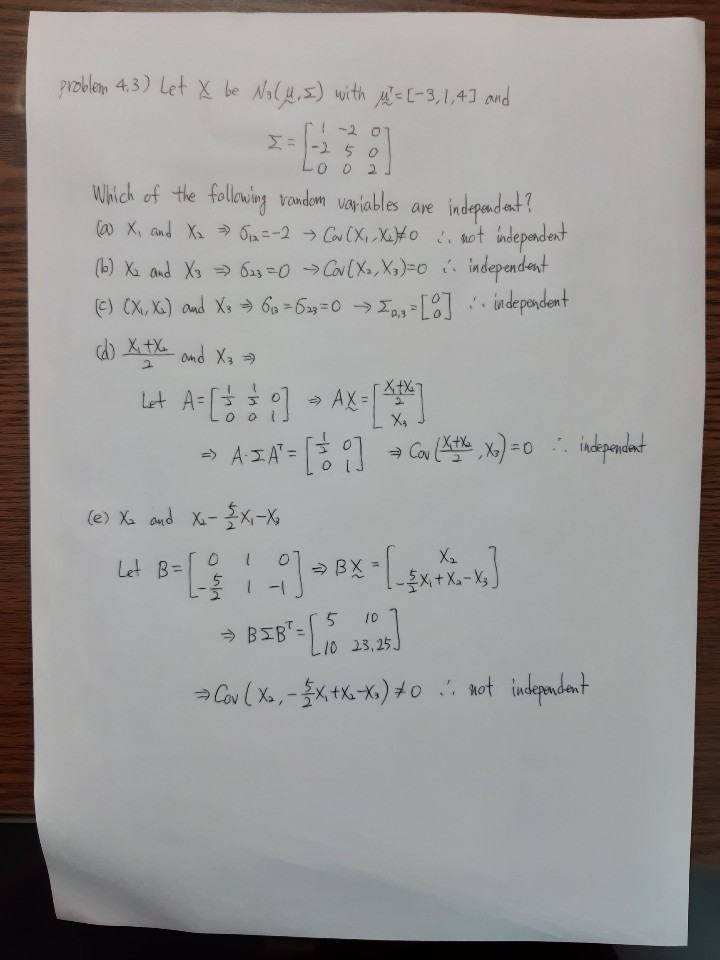 problem 4.3) Let X be N₃(μ,Σ) with μᵀ=[-3,1,4] and
Σ = [1 -2 0
-2 5 0
0 0 2]
Which of the following random variables are independent?
(a) X₁ and X₂ ⇒ σ₁₂=-2 → Cov(X₁,X₂)≠0 ∴ not independent
(b) X₂ and X₃ ⇒ σ₂₃=0 → Cov(X₂,X₃)=0 ∴ independent
(c) (X₁,X₂) and X₃ ⇒ σ₁₃=σ₂₃=0 → Σ₁₂,₃=[0 0] ∴ independent
(d) (X₁+X₂)/2 and X₃ ⇒
Let A=[1/2 1/2 0; 0 0 1] ⇒ AX=[(X₁+X₂)/2; X₃]
⇒ A·ΣAᵀ=[1/2 0; 0 1] ⇒ Cov((X₁+X₂)/2, X₃)=0 ∴ independent
(e) X₂ and X₂-5/2X₁-X₃
Let B=[0 1 0; -5/2 1 -1] ⇒ BX=[X₂; -5/2X₁+X₂-X₃]
⇒ BΣBᵀ=[5 10; 10 23.25]
⇒ Cov(X₂, -5/2X₁+X₂-X₃)≠0 ∴ not independent